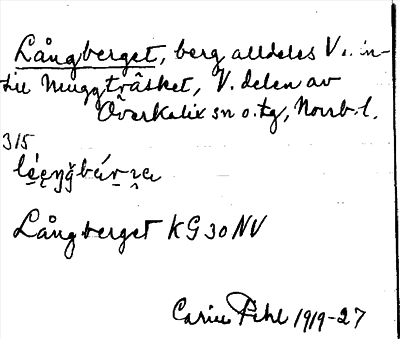 Långberget, berg alldeles V. in-
till Muggträsket, V. delen av
Överkalix sn o. tg, Norrb. l.
315
Långberget KG 30 NV
Carin Pihl 1919-27